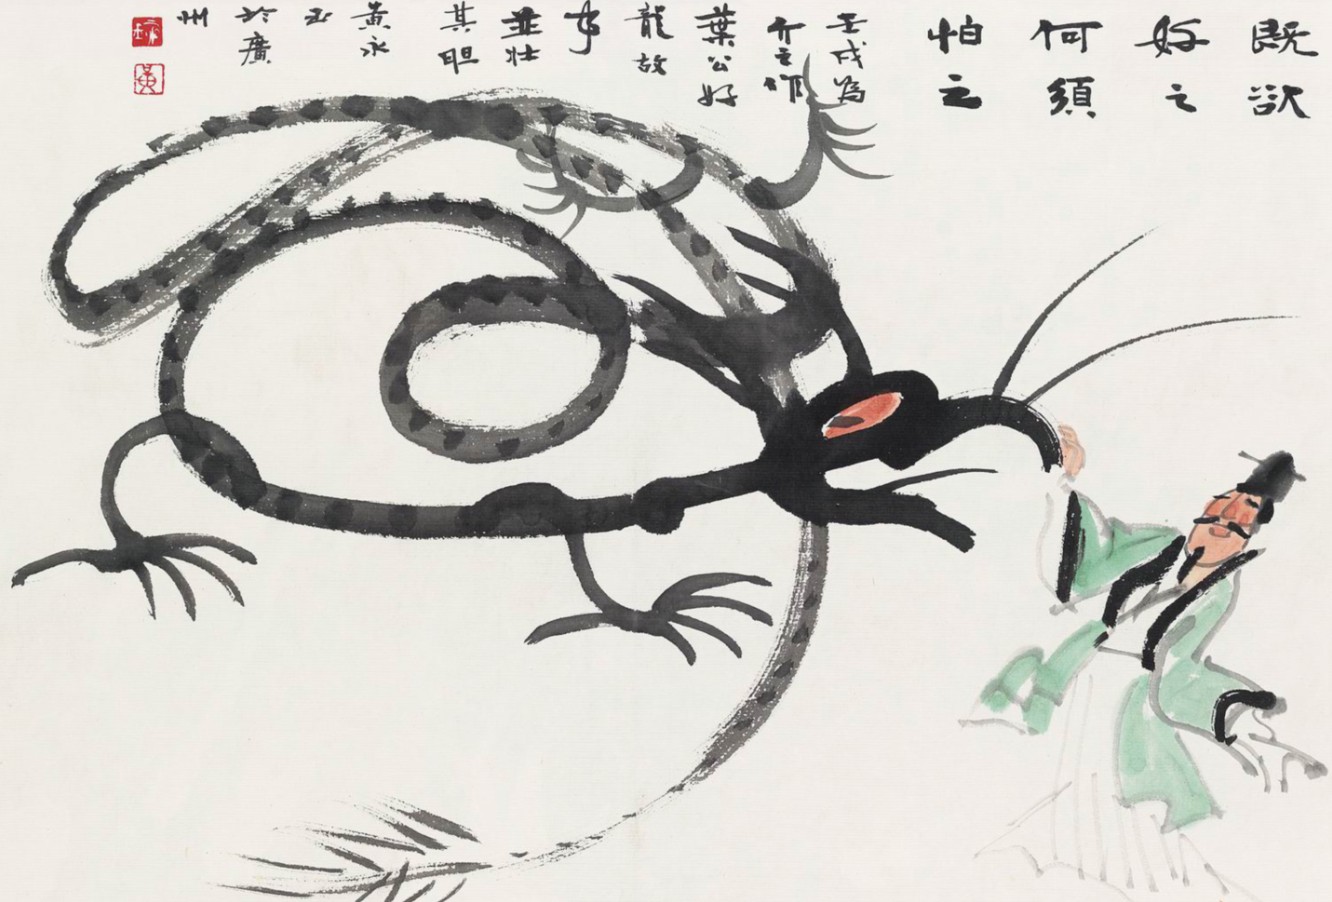 既欲
好之
何須
怕之
壬戌為
介之作
葉公好
龍故
事
並壯
其胆
黄永
玉
於廣
州
黃